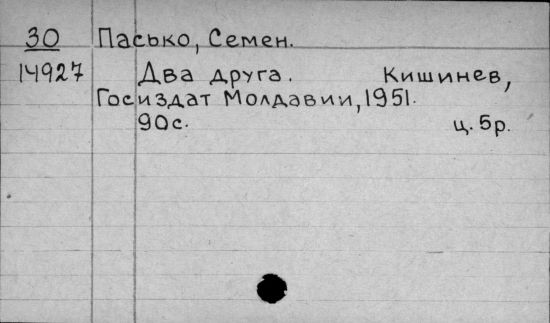 30 Пасько, Семен.
14927 Два друга. Кишинев,
Госиздат Молдавии, 1951.
90с. ц. 5р.